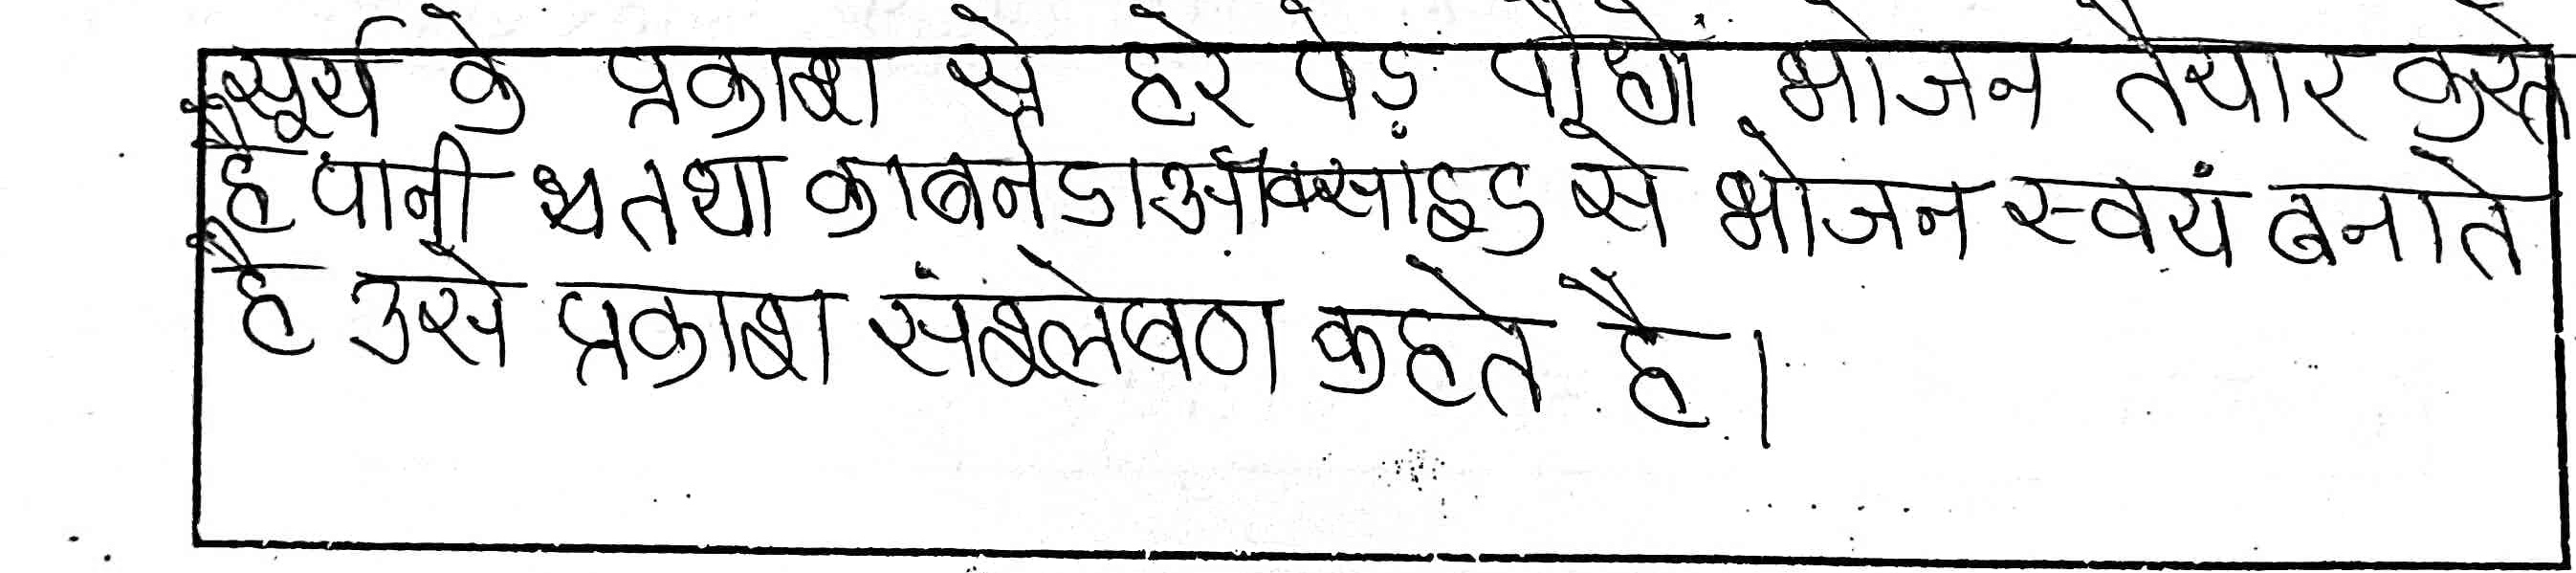 सूर्य के प्रकाश से हरे पेड़ पौधों भोजन तैयार करते
है पानी तथा कार्बनडाऑक्साइड से भोजन स्वयं बनाते
है उसे प्रकाश संश्लेषण कहते है।